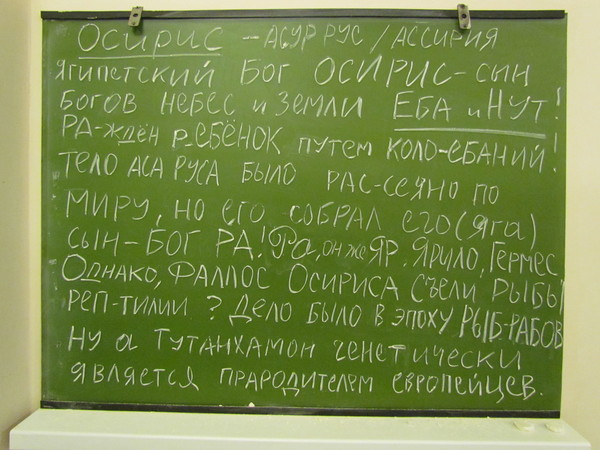 ОСИРИС – АСУР РУС / АССИРИЯ
ЯГИПЕТСКИЙ БОГ ОСИРИС – СЫН
БОГОВ НЕБЕС и ЗЕМЛИ ЕБА и НУТ!
РА-ЖДЁН РЕБЁНОК ПУТЕМ КОЛО-ЕБАНИЙ!
ТЕЛО АСА РУСА БЫЛО РАС-СЕЯНО ПО
МИРУ, НО ЕГО СОБРАЛ ЕГО (ЯГА)
СЫН – БОГ РА! Ра, он же ЯР, Ярило, Гермес
Однако, ФАЛЛОС ОСИРИСА СЪЕЛИ РЫБЫ
РЕП-ТИЛИИ? Дело было в эпоху РЫБ-РАБОВ
НУ а ТУТАНХАМОН генетически
является прародителем европейцев.